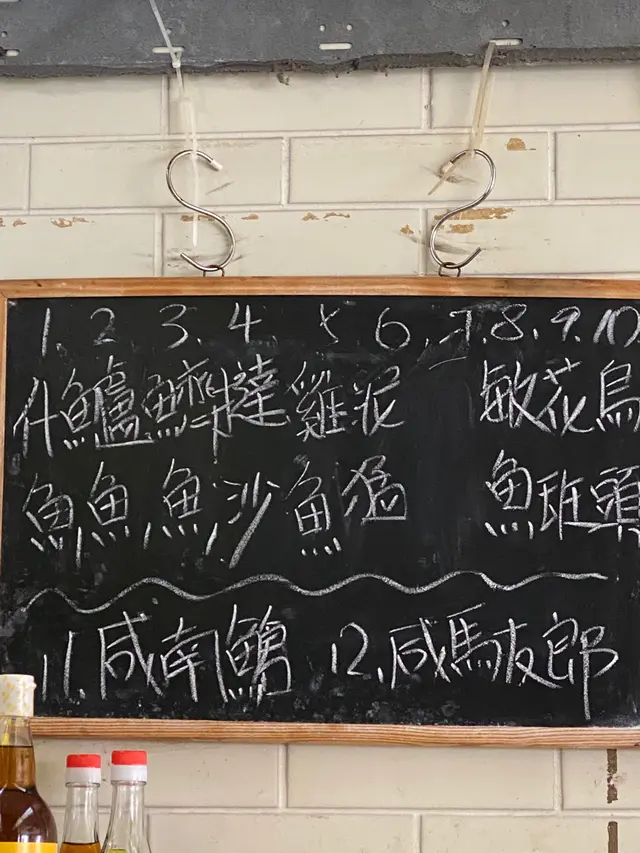 1. 2 3. 4 5 6. 7. 8. 9. 10
什鱸鱭撻雞泥 敏花鳥
魚魚魚沙魚猛 魚班頭
11.咸南 12.咸馬友郎